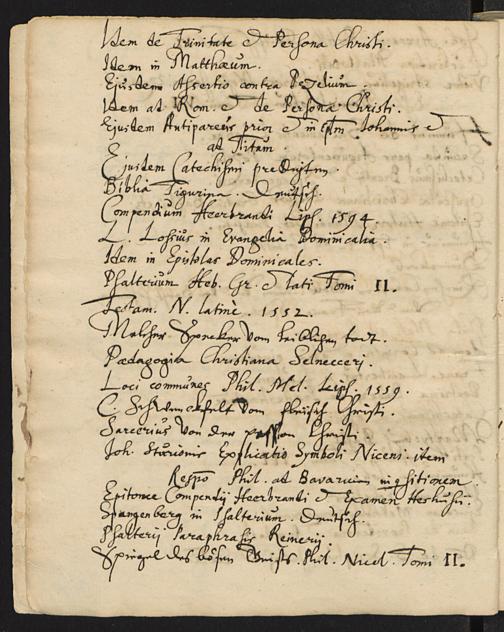 Idem de Trinitate et Persona Christi.
Idem in Matthæum.
Ejusdem Assertio contra Pezelium.
Idem ad Rom. et de Persona Christi.
Ejusdem Antipareus prior et in Epist. Johannis et
ad Titum.
Ejusdem Catechismi
Biblia Tigurina. Deütsch.
Compendium Heerbrandi Lips. 1594.
L. Lossius in Evangelia Dominicalia.
Idem in Epistolas Dominicales.
Psalterium Heb. Gr. et Lati Tomi II.
Testam. N. latinè. 1552.
Melcher Specker vom leiblichen todt.
Pædagogia Christiana Selnecceri.
Loci communes Phil. Mel. Lips. 1559.
C. Schwenckfelt vom fleisch Christi.
Sarcerius von der passion Christi
Joh. Sturionis Explicatio Symboli Niceni. item
Respo Phil. ad Bavaricam inqsitionem
Epitome Compendij Heerbrandi et Examen Heshusii.
Spangenberg in Psalterium. Deütsch.
Psalterij Paraphrasis Reinerij.
Spiegel des bösen Geists. Phil. Nicol. Tomi II.